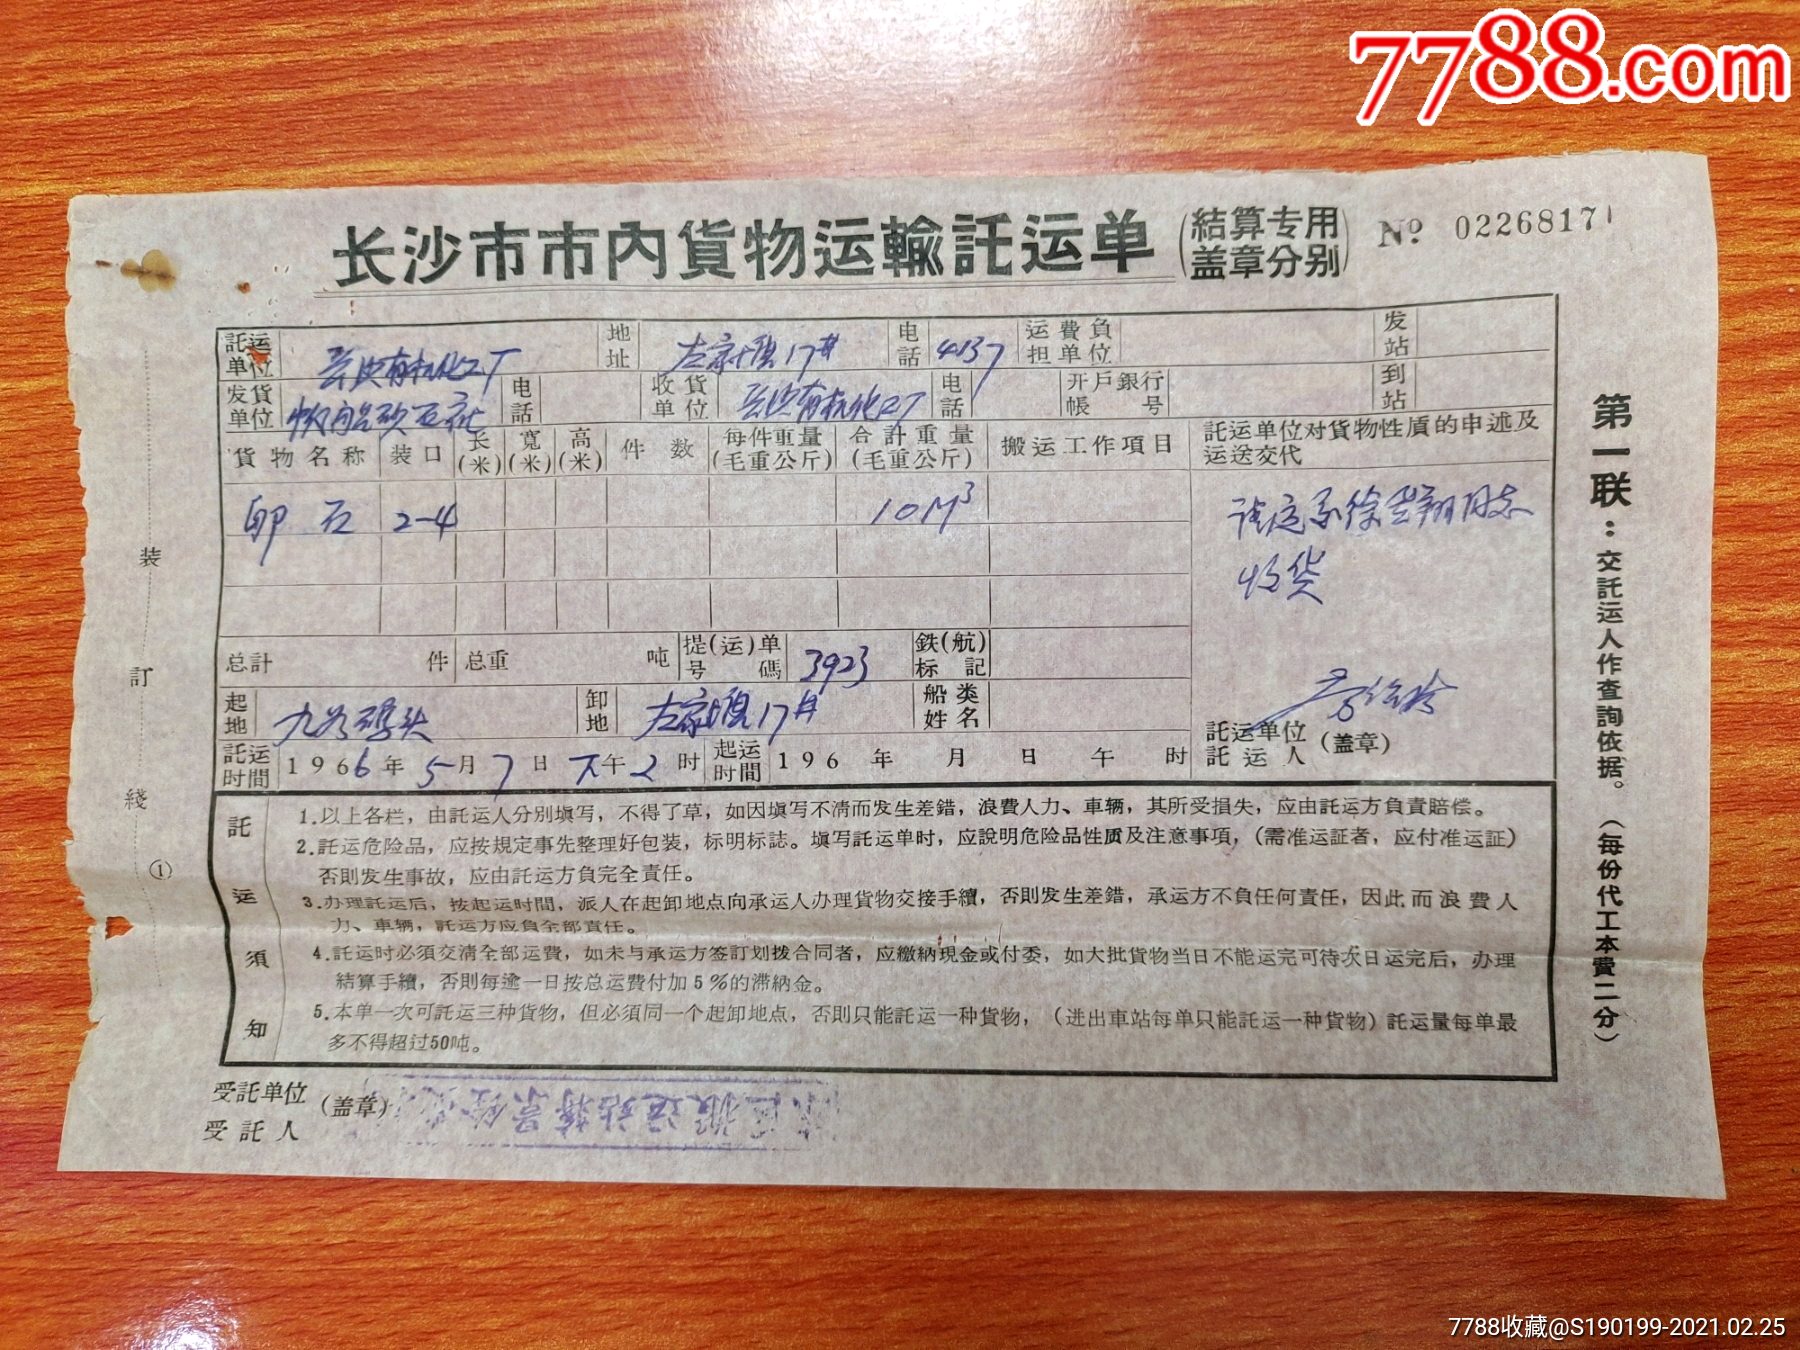 7788.com
长沙市市內貨物运輸託运单 (結算专用 盖章分别) Nº 0226817
託运单位 地址 左家塘17# 电話 4137 运費負担单位 发站
发貨单位 电話 收貨单位 电話 开戶銀行帳号 到站
貨物名称 装口 长(米) 寬(米) 高(米) 件数 每件重量(毛重公斤) 合計重量(毛重公斤) 搬运工作項目 託运单位对貨物性质的申述及运送交代
卵石 2-4 10M³
同志
收货
总計 件 总重 吨 提(运)单号碼 3923 鉄(航)标記
起地 码头 卸地 左家塘17# 船类姓名
託运单位
託运人 (盖章)
託运时間 1966年5月7日下午2时 起运时間 196 年 月 日 午 时
託运須知
1.以上各栏，由託运人分別填写，不得了草，如因填写不清而发生差錯，浪費人力、車辆，其所受损失，应由託运方負責賠偿。
2.託运危险品，应按規定事先整理好包装，标明标誌。填写託运单时，应說明危险品性质及注意事項，(需准运証者，应付准运証)
否則发生事故，应由託运方負完全責任。
3.办理託运后，按起运时間，派人在起卸地点向承运人办理貨物交接手續，否則发生差錯，承运方不負任何責任，因此而浪費人
力、車辆，託运方应負全部責任。
4.託运时必須交清全部运費，如未与承运方签訂划拨合同者，应繳納現金或付委，如大批貨物当日不能运完可待次日运完后，办理
結算手續，否則每逾一日按总运費付加5%的滞納金。
5.本单一次可託运三种貨物，但必須同一个起卸地点，否則只能託运一种貨物，(进出車站每单只能託运一种貨物)託运量每单最
多不得超过50吨。
受託单位
受託人 (盖章)
第一联：交託运人作查詢依据。(每份代工本費二分)
装
訂
綫
①
7788收藏@S190199-2021.02.25